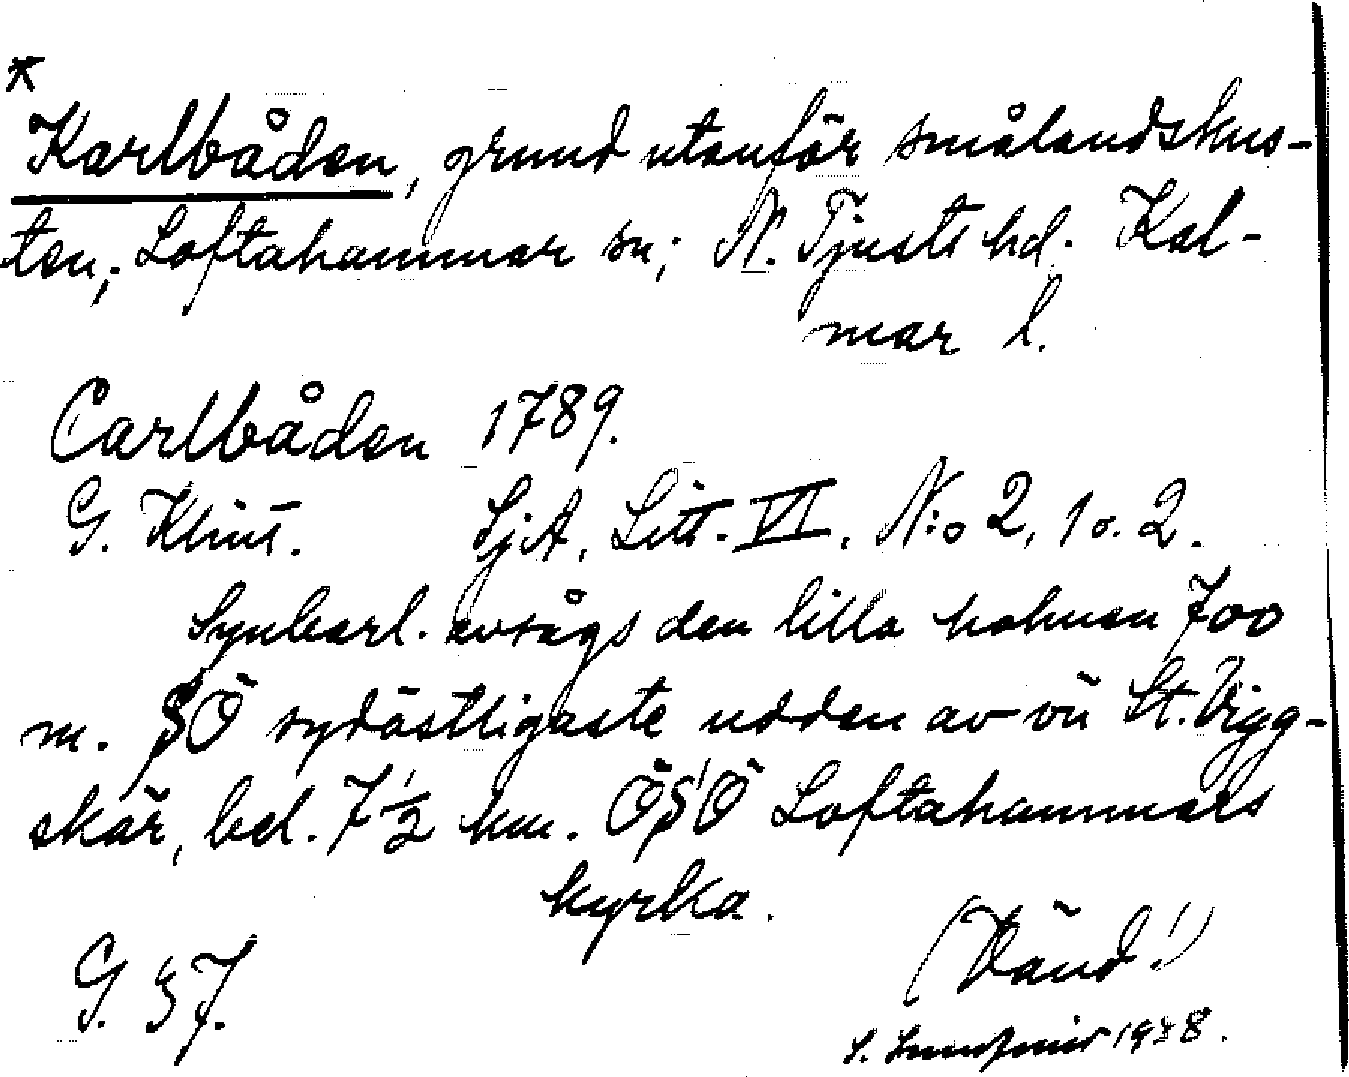 *
Karlbåden, grund utanför smålandskus-
ten; Loftahammar sn; N. Tjusts hd. Kal-
mar l.
Carlbåden 1789.
G. Klint. SjA, Litt. VI. N:o 2, 1 o. 2.
Synbarl. avsågs den lilla holmen 700
m. SÖ sydöstligaste udden av ön St. Vigg-
skär, bel. 7½ km. ÖSÖ Loftahammars
kyrka.
(Vänd!)
G. 37.
S. 1938.